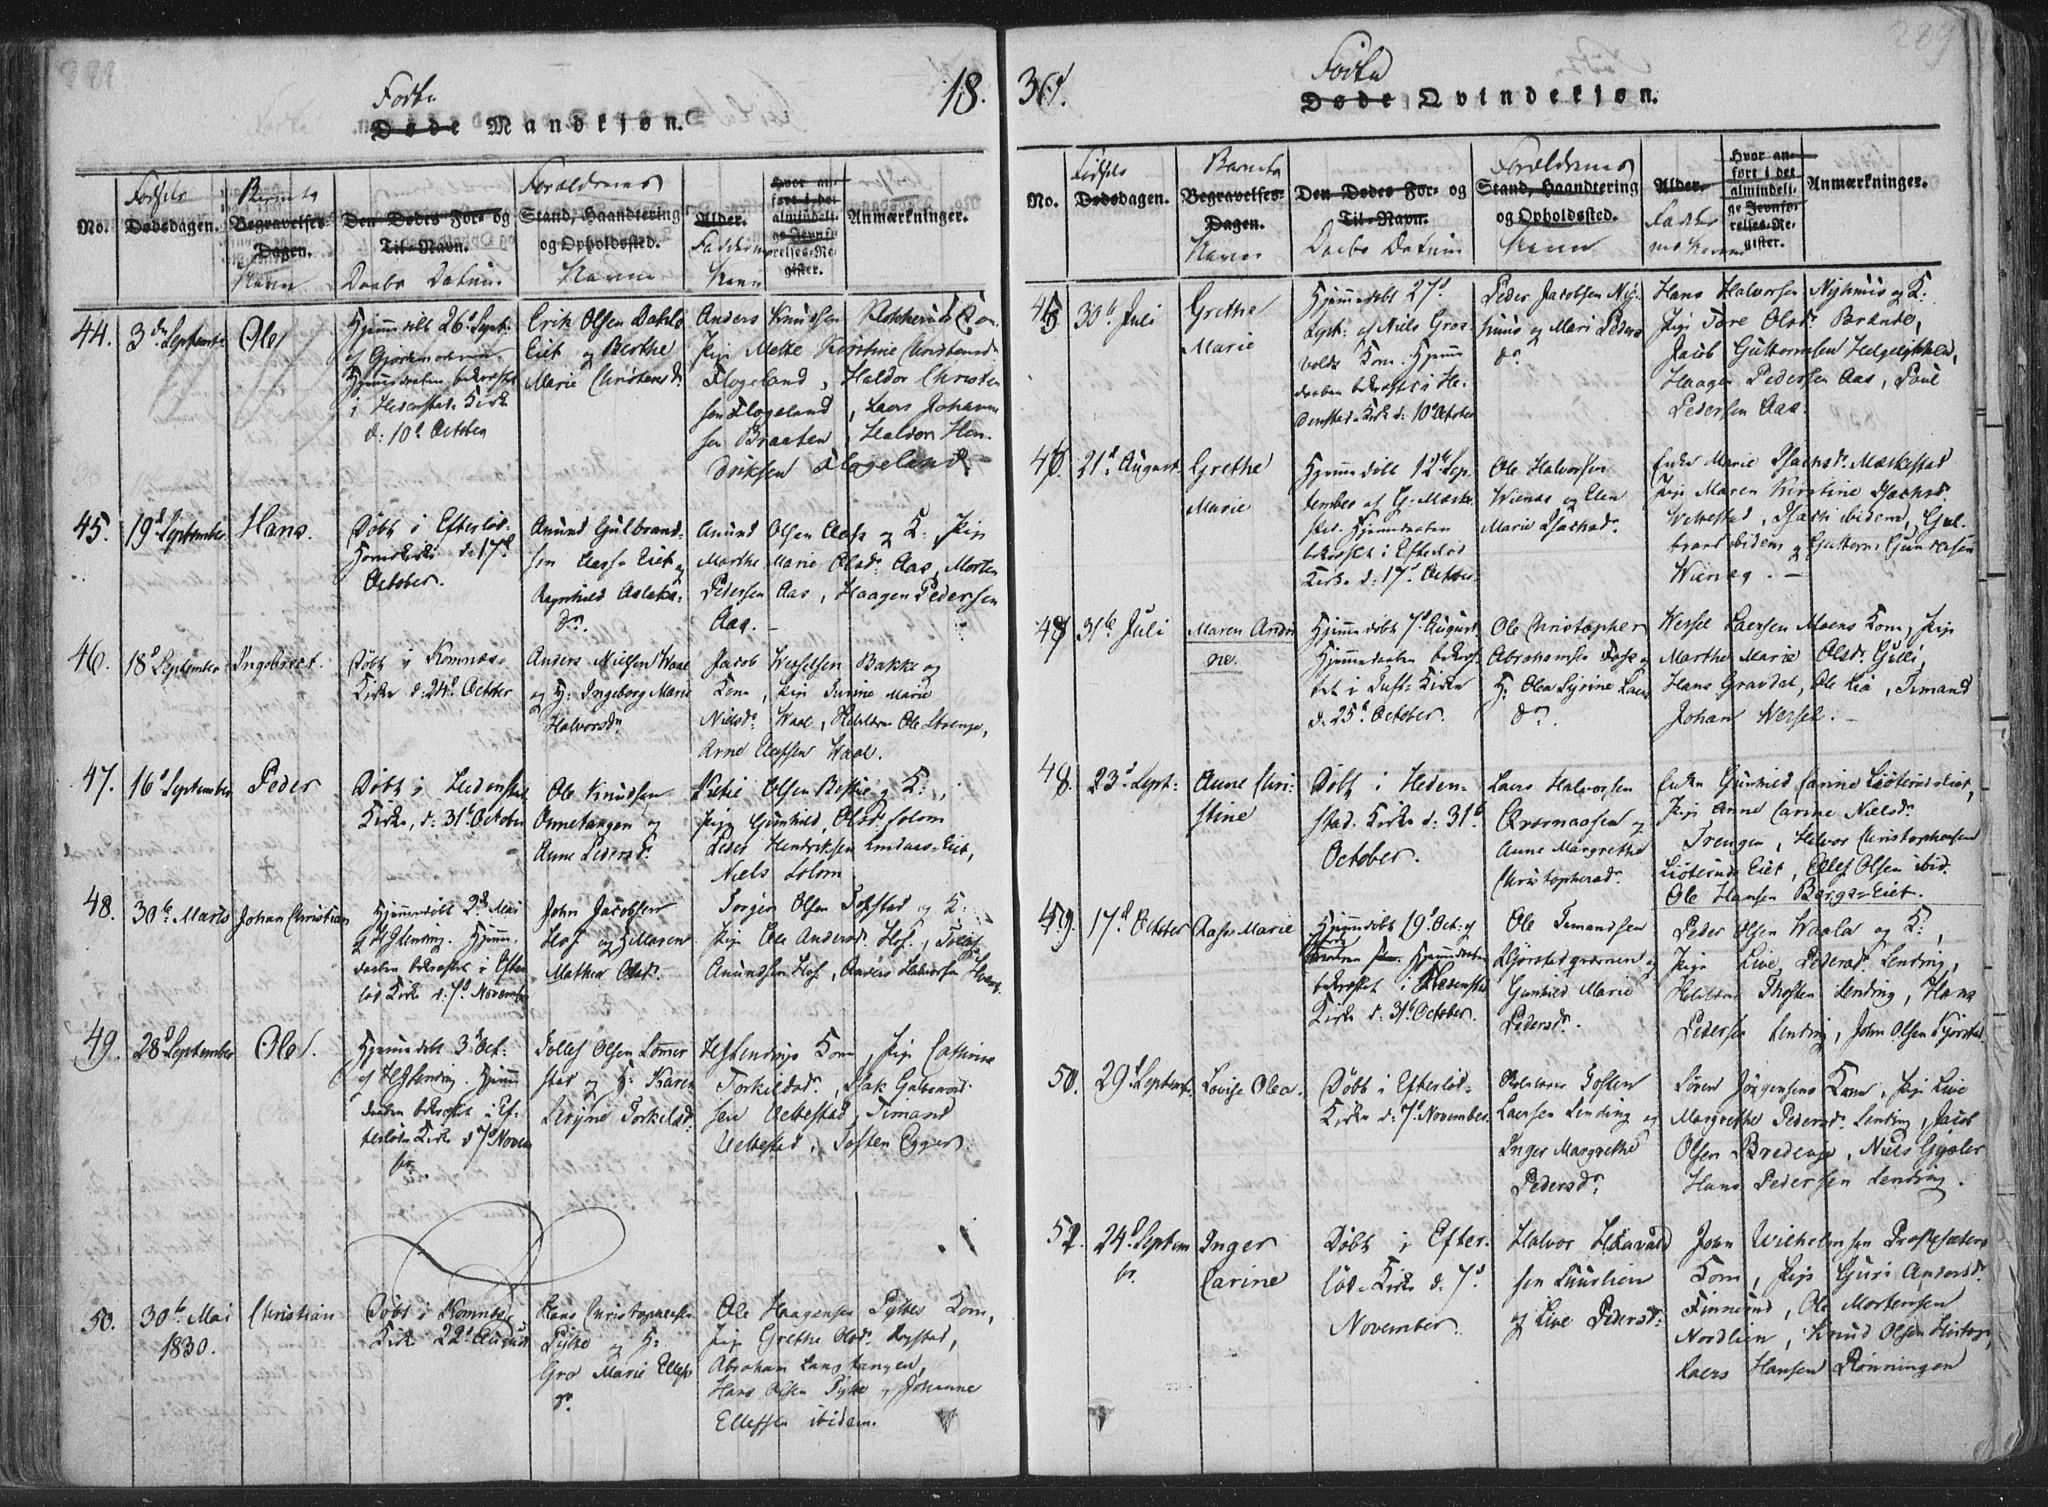 Fødte
Døde Mandkjøn.
18.
No.
Fødsels
Dødsdagen.
Barnets
Begravelses-
Dagen.
Navn
Den Dødes For- og
Til-Navn.
Daabs Datum
Forældrenes
Stand, Haandtering
og Opholdssted.
Navne
Alder.
Faddernes
Navn
Hvor an-
ført i det
almindeli-
ge Jevnfø-
relses-Re-
gister.
Anmærkninger.
44.
3de September
Ole
Hjemmedøbt 26d Sept:
af
Hjemmedaaben bekræftet
i Hedenstad Kirke
d: 10d October
Erik Olsen
Eiet og Berthe
Marie Christensd.
Anders Knudsen
Pige Mette Kirstine Christensd.
Flogeland, Haldor Christen
sen Flogeland, Laers Johann
sen Braaten, Haldor Hen
driksen Flogeland.
45.
19d September
Hans.
Døbt i Efterløds-
Kirke d: 17d
October.
Amund Gulbrand-
sen Aass Eiet og
Ragnhild Aslaks-
dr.
Amund Olsen Aass og K: Pige
Marthe Marie Olsdr. Aas, Morten
Pedersen Aas, Haagen Pedersen
Aas.
46.
18d September
Ingebret.
Døbt i Komnæs-
Kirke d: 24d October
Anders Nielsen Waal
og H: Ingeborg Marie
Halvorsdr.
Jacob Wesselsen Bakke og
Kone, Pige Marie
Nielsdr. Waal, Ole Strenge,
Arne Ellefsen Waal.
47.
16d September
Peder
Døbt i Hedenstad
Kirke, d: 31te October
Ole Knudsen
Ormetangen og
Anne Pedersdr.
Olsen Bestie og K:,
Pige Gunhild Olsdr Solom
Peder Hendriksen Eiet,
Niels Solom
48.
30te Marts
Johan Christian
Hjemmedøbt 2den Mai
af H Lending. Hjemme-
daaben bekræftet i Efter-
løds Kirke d: 7d November
John Jacobsen
Hof og H: Maren
Mathea Olsdr.
Torger Olsen Tofstad og K:
Pige Ole Andersdr. Hof,
Amundsen Hof, Anders Halvorsen
49.
28d September
Ole.
Hjemmedøbt 3d Oct:
af H Lending. Hjemme
daaben bekræftet i Ef-
terløds Kirke d 7d Novem
br.
Tollef Olsen Somer
stad og H: Karen
Torkelsdr:
H Lendings Kone, Pige Cathrine
Torkildsdr, Isak Gulbrand-
sen Vettestad, Timand
Vettestad, Tosten Egger
50.
30te Mai
1830.
Christian
Døbt i Komnæs
Kirke 22d August
Hans Christophersen
og H:
Gro Marie Ellefs
dr.
Ole Haagensen Kone,
Pige Grethe Olsdr.
Abraham Langtangen,
Hans Olsen, Johanne
Ellefsen ibidem.
30d.
Fødte
Døde Qvindekjøn.
No.
Fødsels
Dødsdagen.
Barnets
Begravelses-
Dagen.
Navne
Den Dødes For- og
Til-Navn.
Daabs Datum
Forældrenes
Stand, Haandtering
og Opholdssted.
Navne
Alder.
Faddernes
Navne
Hvor an-
ført i det
almindeli-
ge Jevnfø-
relses-Re-
gister.
Anmærkninger.
45
30te Juli
Grethe
Marie
Hjemmedøbt 27d
af Niels Gros
volds Kone. Hjemme
daaben bekræftet i He-
denstad Kirke d: 10d October
Peder Jacobsen Ny-
huus og Mari Peders
dr.
Hans Halvorsen Nyhuus og K:
Pige Tore Olsdr Brænde,
Jacob Guttormsen
Haagen Pedersen Aas, Poul
Pedersen Aas.
46.
21d August.
Grethe
Marie
Hjemmedøbt 12te Sep
tember af G. Mæske
stad. Hjemmedaaben
bekræftet i Efterløds
Kirke d: 17d October.
Ole Halvorsen
Wienes og Elen
Marie Isachsdr.
Enke Marie Isachsdr. Mæskestad
Pige Maren Kirstine Isachsdr.
Vettestad, Isach ibidem, Gul-
brand ibidem og Guttorm Gundersen
Wienes. —
47
31te Juli
Maren Andri
ne.
Hjemmedøbt 7d August
Hjemmedaaben bekræf-
tet i Tuft-Kirke
d: 25d October.
Ole Christopher
Abrahamsen Fosse og
H: Olea Syrine Laers
dr.
Wessel Laersen Moens Kone, Pige
Marthe Marie Olsdr Gulli,
Hans Gravdal, Ole Lia, Timand
Johan Wessel. —
48.
23d Sept:
Anne Chri-
stine
Døbt i Heden-
stad Kirke d: 31te
October.
Laers Halvorsen
Qværnaasen og
Anne Margrethe
Christophersdr.
Enke Gunhild Carine Eiet,
Pige Anne Carine Nielsdr.
Trengen, Halvor Christophersen
Eiet, Ellef Olsen ibid.
Ole Hansen Berge-Eiet.
49.
17d October
Aase Marie
Hjemmedøbt 19d Oct: af
Hjemmedaaben
bekræftet i Hedenstad
Kirke d: 31te October.
Ole Timandsen
Kjørstadqværnen og
Gunhild Marie
Pedersdr.
Peder Olsen Waala og K:,
Pige Live Pedersdr Lending,
Thosten Lending, Hans
Pedersen Lending, John Olsen Kjørstad
50.
29d Septembr.
Lovise Olea.
Døbt i Efterløds-
Kirke d: 7d November.
Tosten
Laersen Lending og
Inger Margrethe
Pedersdr.
Søren Jørgensens Kone, Pige Live
Margrethe Pedersdr. Lending, Jacob
Olsen Bredenge, Niels Gysler
Hans Pedersen Lending.
52.
24d Septem
br.
Inger
Carine
Døbt i Efter-
løds-Kirke d. 7d
November.
Halvor Haavald
sen Luurlien
og Live Pedersdr:
John Wilhelmsen
Kone, Pige Guri Andersdr.
Finnerud, Ole Mortensen
Nordlien, Knud Olsen
Laers Hansen Rønningen